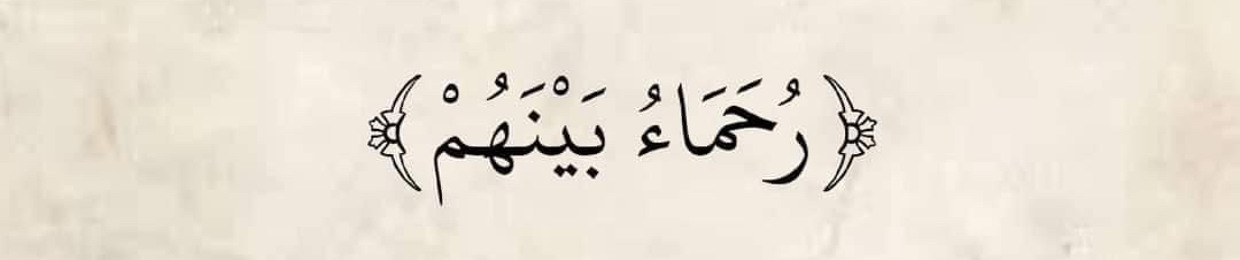 ﴿رُحَمَاءُ بَيْنَهُمْ﴾